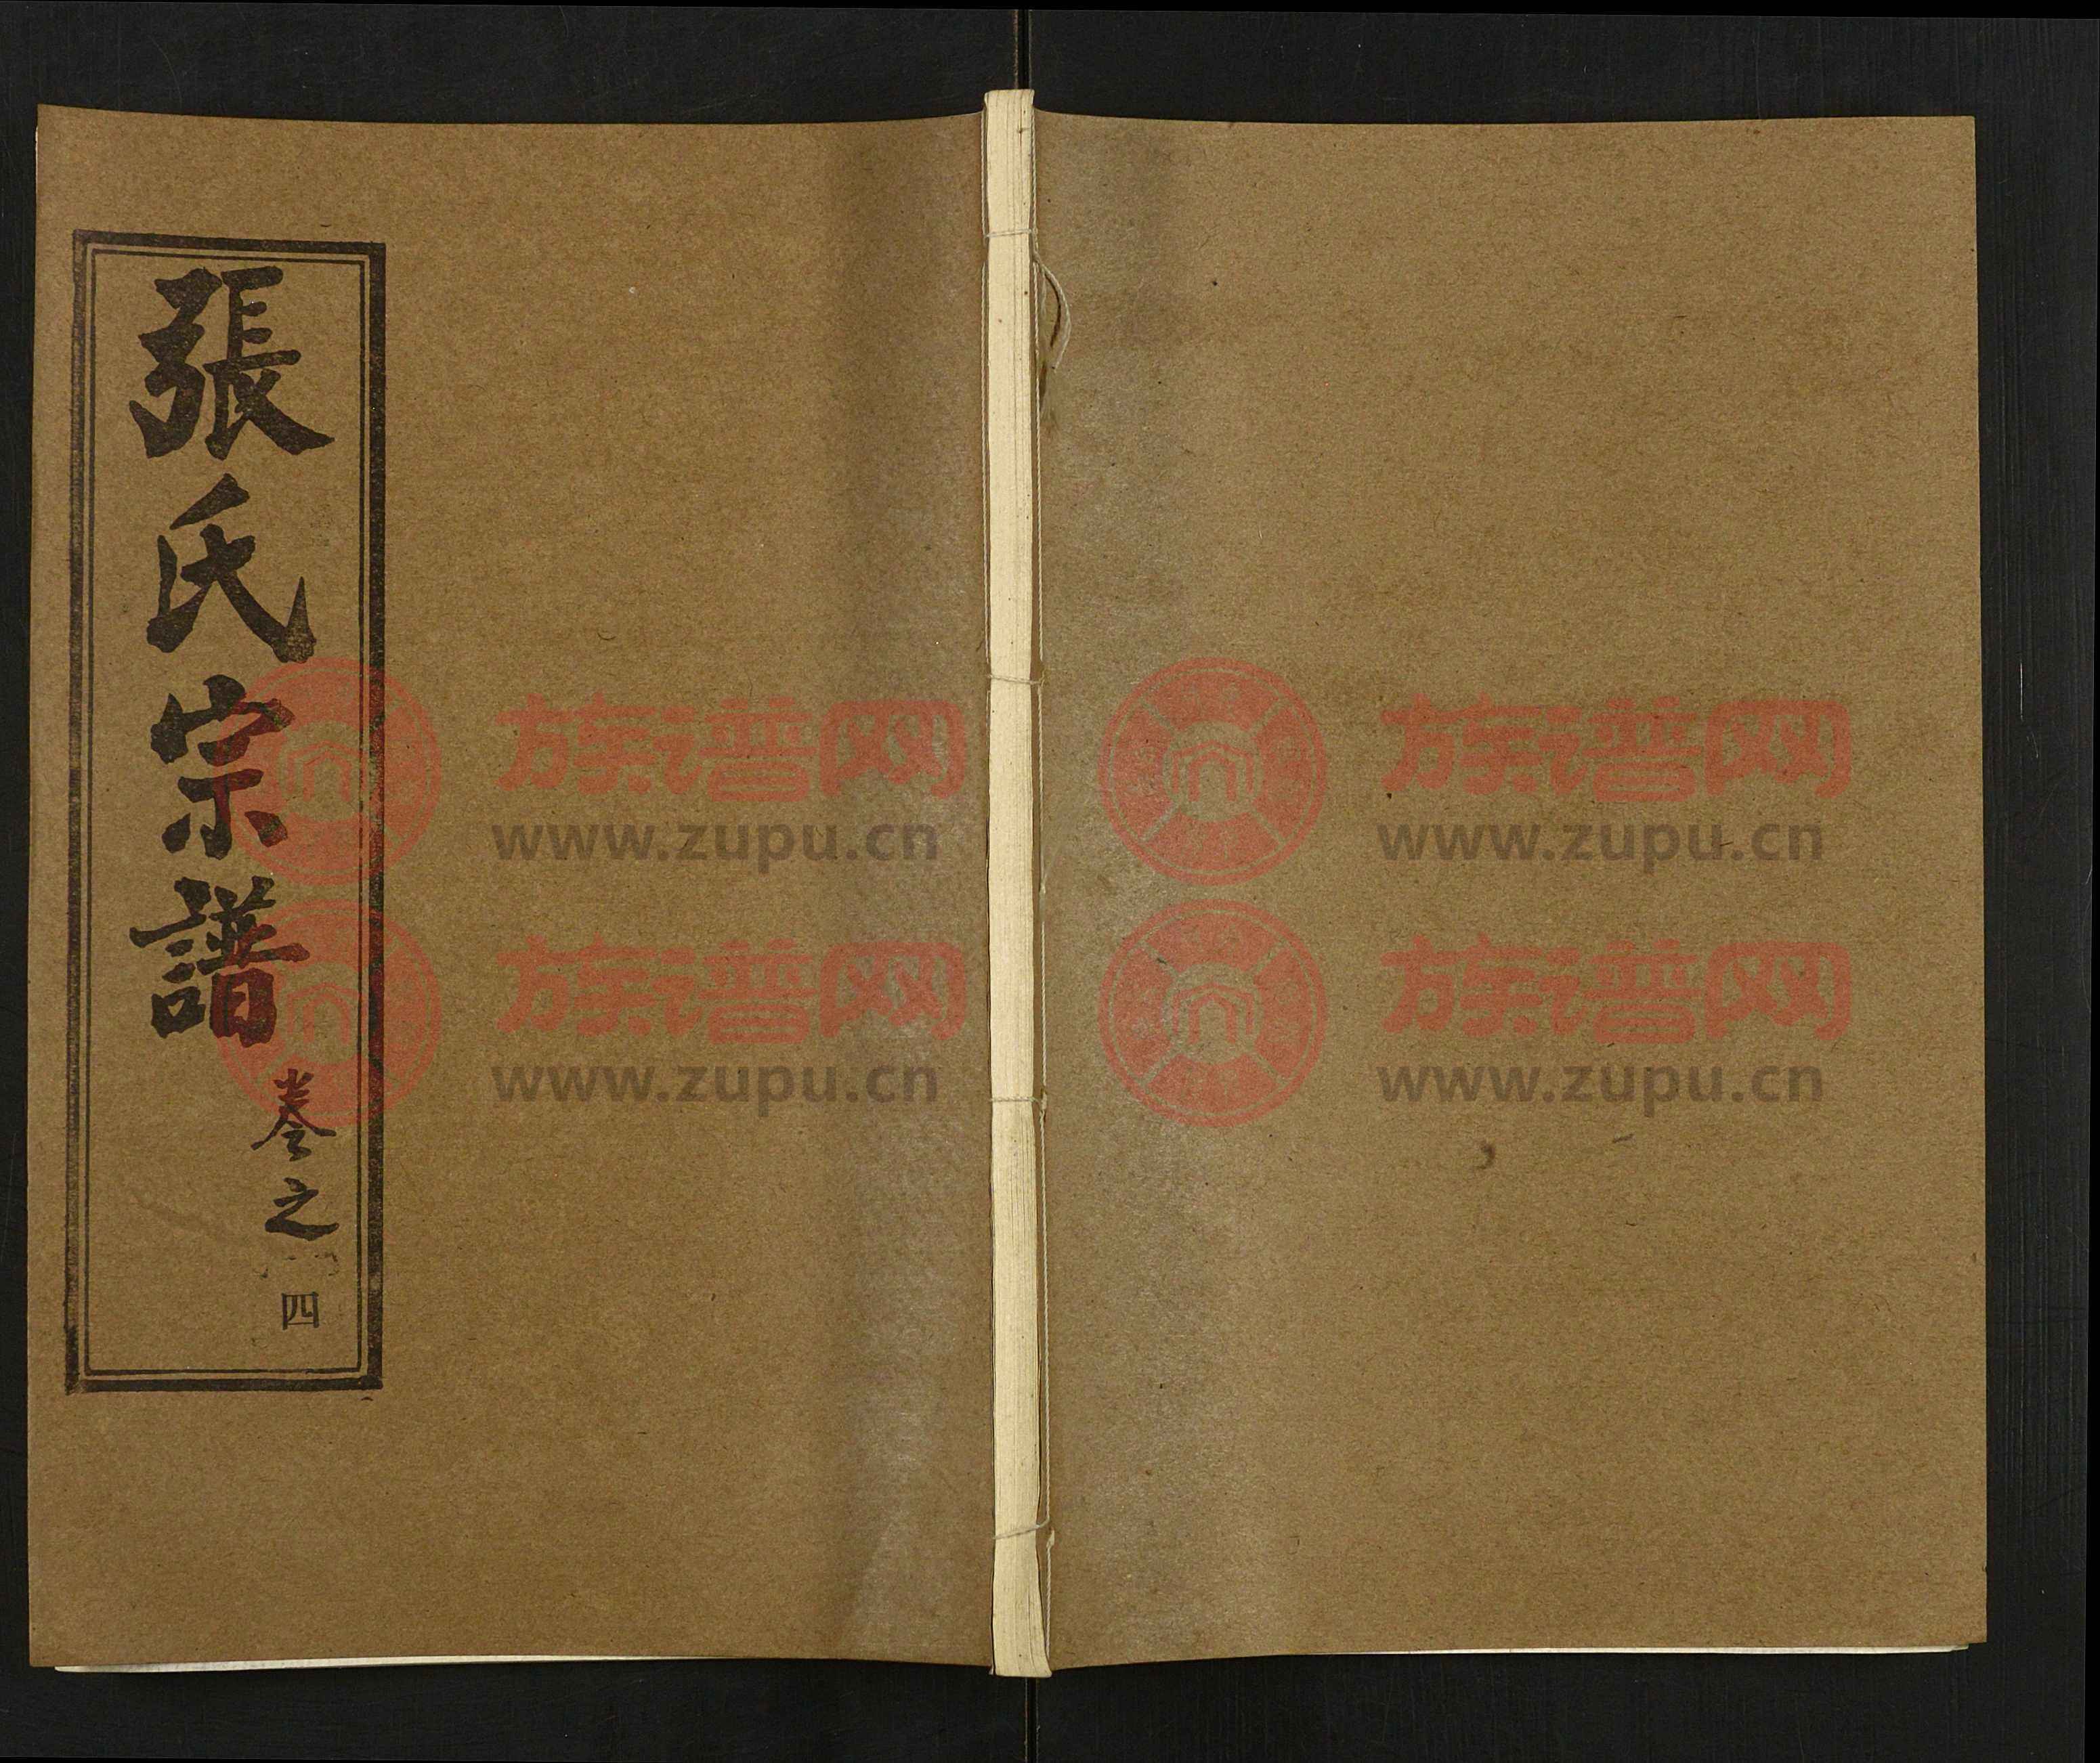 張氏宗譜
卷之
四
族谱网
www.zupu.cn
族谱网
www.zupu.cn
族谱网
www.zupu.cn
族谱网
www.zupu.cn